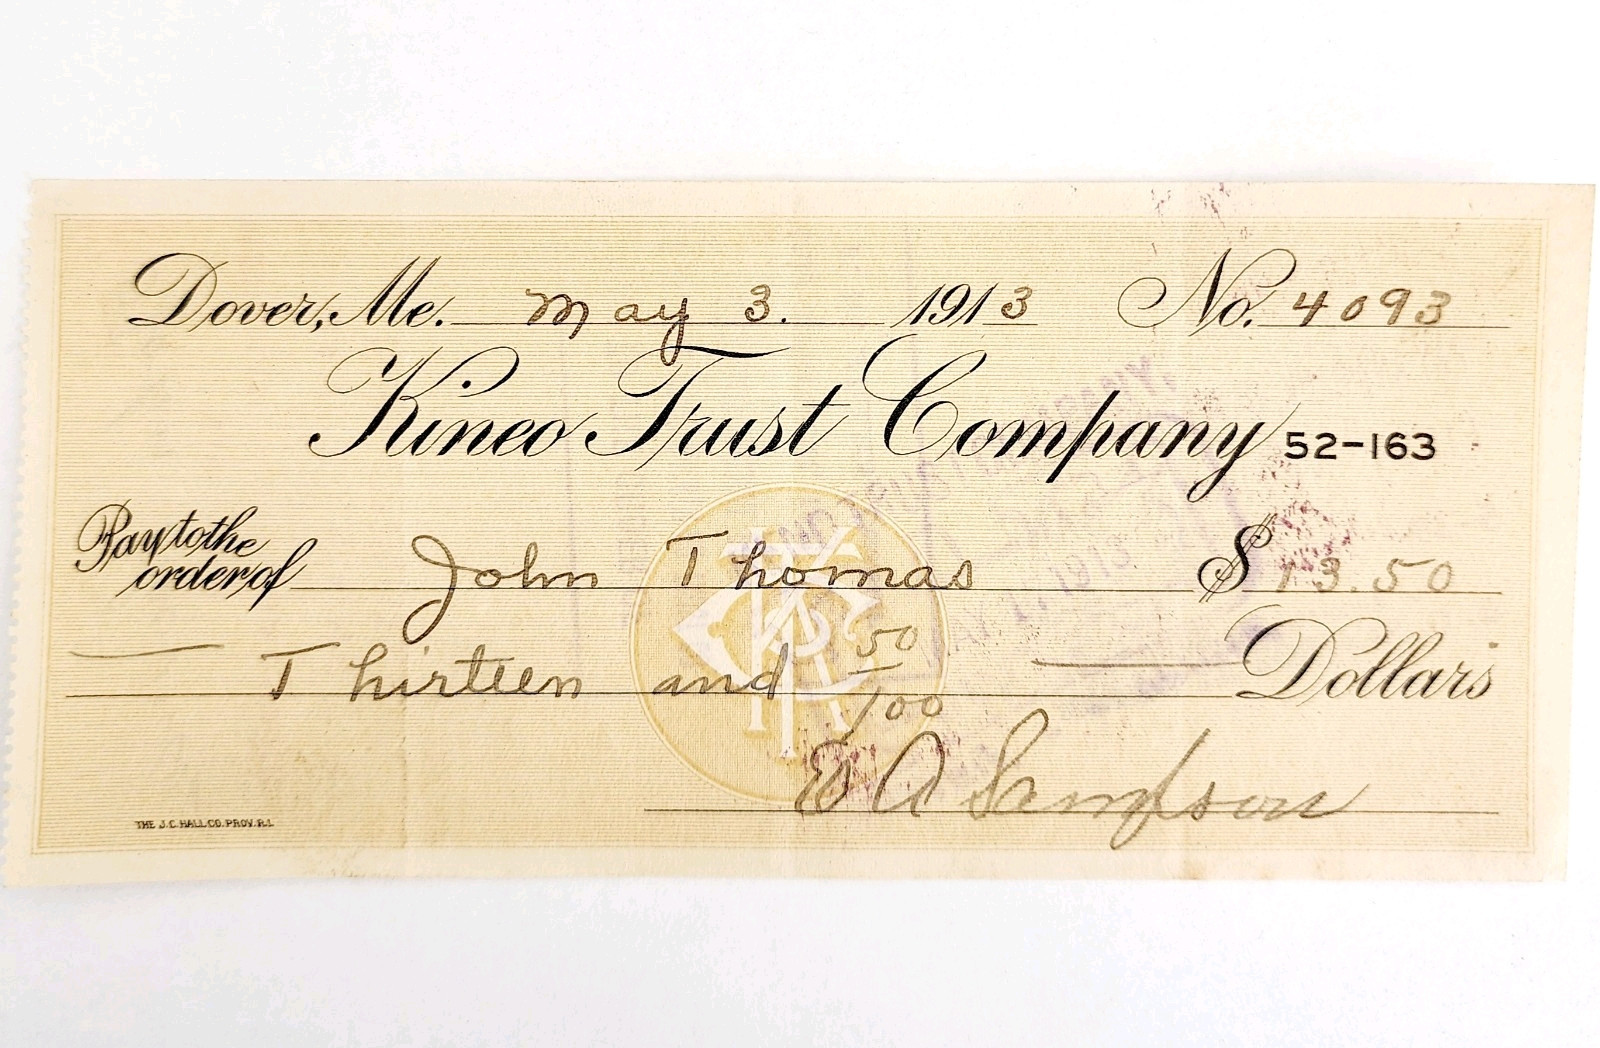 Dover, Me. May 3. 1913 No. 4093
Kineo Trust Company 52-163
Pay to the
order of John Thomas $13.50
Thirteen and 50/100 Dollars
E A Sampson
THE J.C. HALL CO. PROV. R.I.